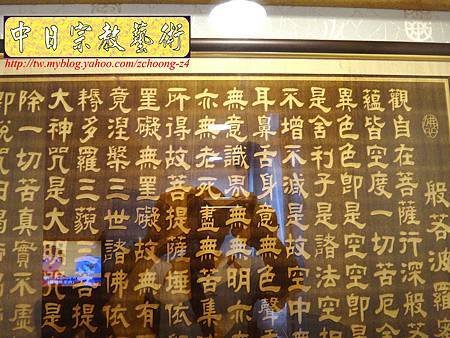 中日宗教藝術
http://tw.myblog.yahoo.com/zchoong-z4
般若波羅蜜
觀自在菩薩行深般
蘊皆空度一切苦厄舍
異色色即是空空即是
是舍利子是諸法空相
不增不減是故空中
耳鼻舌身意無色聲
無意識界無無明亦
亦無老死盡無苦集
所得故菩提薩埵依
罣礙無罣礙故無有
竟涅槃三世諸佛依
耨多羅三藐三菩提
大神咒是大明咒是
除一切苦真實不虛
即說咒曰揭諦